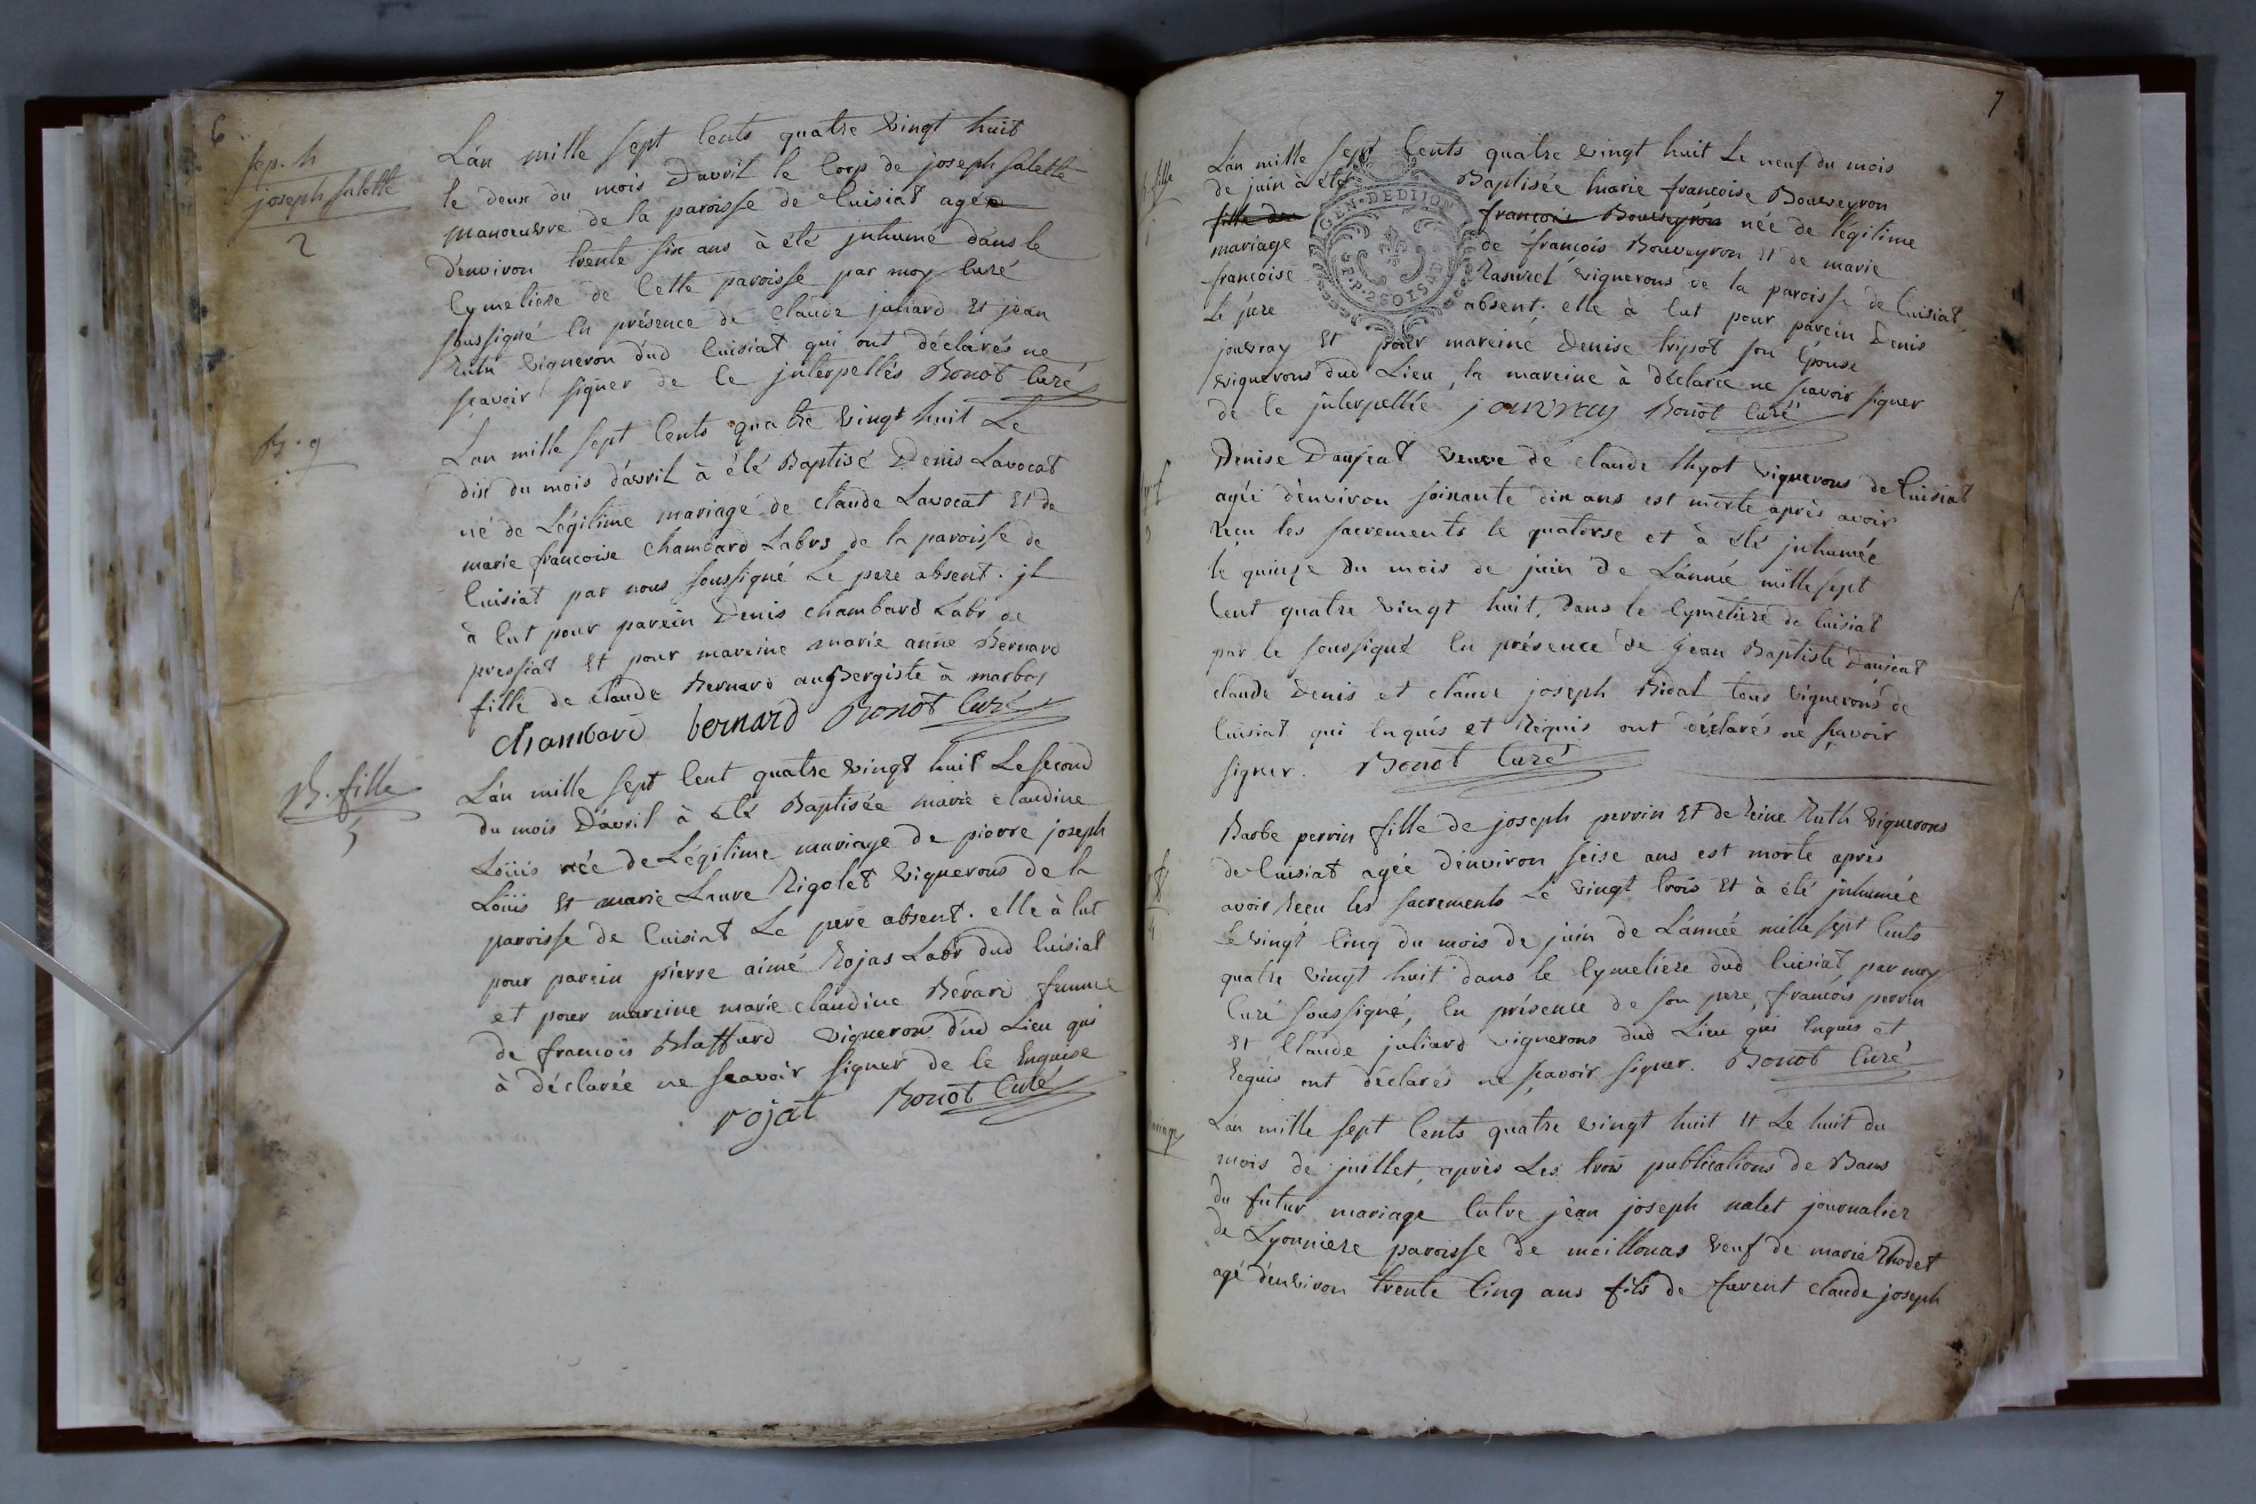 6
sep. h
joseph salette
2
L'an mille sept Cents quatre vingt huit
le deux du mois D'avril le Corp de joseph salette
manoeuvre de la paroisse de Cuisiat agée
d'environ trente six ans à été jnhumé dans le
Cymetiere de Cette paroisse par moy Curé
soussigné En présence de Claude juliard Et jean
vigneron dud Cuisiat qui ont déclarés ne
scavoir signer de Ce jnterpellés Bonot Curé
B. g
L'an mille sept Cents quatre vingt huit Le
dix du mois d'avril à été Baptisé Denis Lavocat
né de Légitime mariage de Claude Lavocat Et de
marie francoise Chambard Labrs de la paroisse de
Cuisiat par nous soussigné Le pere absent. jL
à Eut pour parein Denis Chambard Labr de
pressiat Et pour mareine marie anne Bernard
fille de Claude Bernard aubergiste à marboz
Chambard bernard Bonot Curé
B. fille
5
L'an mille sept Cent quatre vingt huit Le second
du mois D'avril à Eté Baptisée marie Claudine
Loüis née de Légitime mariage de pierre joseph
Loüis Et marie Laure Rigolet vignerons de la
paroisse de Cuisiat Le pere absent. elle à Eut
pour parein pierre aimé Rojas Labr dud Cuisiat
et pour mareine marie Claudine Bérard femme
de francois Blattard vignerons dud Lieu qui
à déclarée ne scavoir signer de Ce Enquise
rojat Bonot Curé
7
h. fille
L'an mille sept Cents quatre vingt huit Le neuf du mois
de juin à été Baptisée Marie francoise Bouveyron
fille de francois Bouveyron née de légitime
mariage de francois Bouveyron Et de marie
francoise Rasurel vignerons de la paroisse de Cuisiat,
Le pere absent. elle à Eut pour parein Denis
jouvray Et pour mareine Denise tripot son Epouse
vignerons dud Lieu, la mareine à déclarée ne scavoir signer
de Ce jnterpellée jouvray Bonot Curé
GEN·DE DIJON
G.P.P. 2 SOLS
Denise Daujeat veuve de Claude thyot vignerons de Cuisiat
agée d'environ soixante dix ans est morte après avoir
recu les sacrements le quatorse et à été jnhumée
le quinze du mois de juin de L'année mille sept
Cent quatre vingt huit, dans le Cymetiere de Cuisiat
par le soussigné En présence de jean Baptiste Daujeat
Claude Denis et Claude joseph Bidal tous vignerons de
Cuisiat qui Enquis et Requis ont déclarés ne scavoir
signer. Bonot Curé
Barbe perrin fille de joseph perrin Et de Reine Ruth vignerons
de Cuisiat agée d'environ seise ans est morte après
avoir Recu les sacrements Le vingt trois Et à été jnhumée
Le vingt Cinq du mois de juin de L'année mille sept Cents
quatre vingt huit dans le Cymetiere dud Cuisiat par moy
Curé soussigné, En présence de son pere, francois perrin
Et Claude juliard vignerons dud Lieu qui Enquis et
Requis ont déclarés ne scavoir signer. Bonot Curé
mariage
L'an mille sept Cents quatre vingt huit Et Le huit du
mois de juillet, après Les trois publications de Bans
du futur mariage Entre jean joseph nalet journalier
de Lyonniere paroisse de meillonas veuf de marie Rhodet
agé d'environ trente Cinq ans fils de fuevent Claude joseph